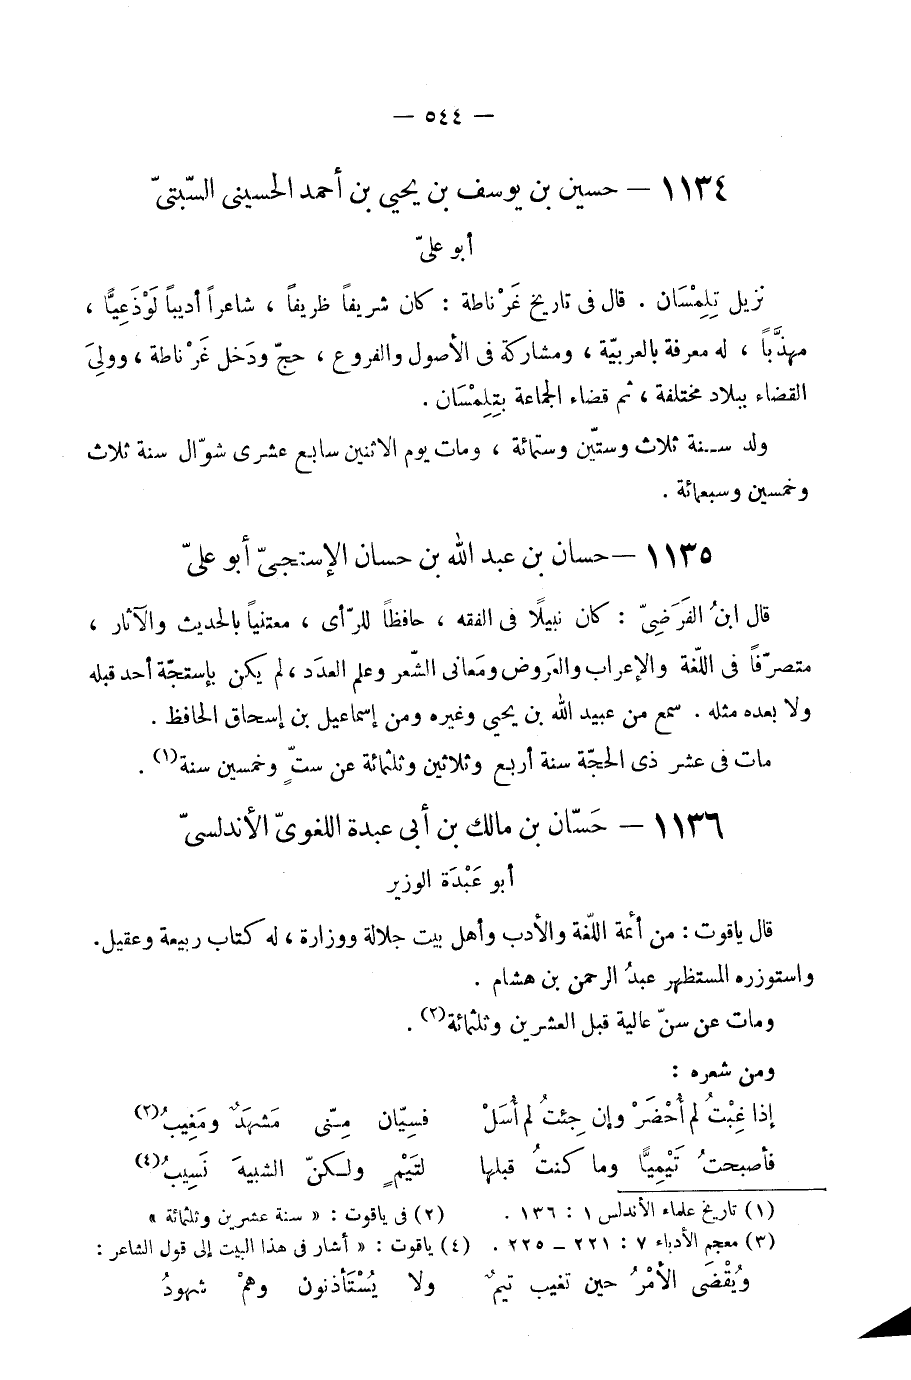 — ٥٤٤ —
١١٣٤ – حسين بن يوسف بن يحيى بن أحمد الحسينى السّبتىّ
أبو علىّ
نزيل تِلِمْسَان . قال فى تاريخ غَرْناطة : كان شريفاً ظريفاً ، شاعراً أديباً لَوْذَعِيًّا ،
مهذَّباً ، له معرفة بالعربيّة ، ومشاركة فى الأصول والفروع ، حجّ ودَخل غَرْناطة ، وولِىَ
القضاء ببلاد مختلفة ، ثم قضاء الجماعة بِتِلِمْسَان .
ولد ســنة ثلاث وستّين وستمائة ، ومات يوم الاثنين سابع عشرى شوّال سنة ثلاث
وخمسين وسبعمائة .
١١٣٥ – حسان بن عبد الله بن حسان الإستجىّ أبو علىّ
قال ابنُ الفَرَضِىّ : كان نبيلًا فى الفقه ، حافظاً للرّأى ، معتنياً بالحديث والآثار ،
متصرّفاً فى اللّغة والإعراب والعَروض ومَعانى الشّعر وعلم العدَد ، لم يكن بإستجّة أحد قبله
ولا بعده مثله . سمع من عبيد الله بن يحيى وغيره ومن إسماعيل بن إسحاق الحافظ .
مات فى عشر ذى الحجّة سنة أربع وثلاثين وثلثمائة عن ستٍّ وخمسين سنة(١) .
١١٣٦ – حَسّان بن مالك بن أبى عبدة اللغوىّ الأندلسىّ
أبو عَبْدَة الوزير
قال ياقوت : من أئمة اللّغة والأدب وأهل بيت جلالة ووزارة ، له كتاب ربيعة وعقيل .
واستوزره المستظهر عبدُ الرحمن بن هشام .
ومات عن سنّ عالية قبل العشرين وثلثمائة(٢) .
ومن شعره :
إذا غِبْتُ لم أُحْضَرْ وإن جئتُ لم أُسَلْ فسِيّان مِنّى مَشهَدٌ ومَغِيبُ(٣)
فأصبحتُ تَيْمِيًّا وما كنتُ قبلها لتَيْمٍ ولـكنّ الشبيهَ نَسِيبُ(٤)
(١) تاريخ علماء الأندلس ١ : ١٣٦ . (٢) فى ياقوت : « سنة عشرين وثلثمائة »
(٣) معجم الأدباء ٧ : ٢٢١ – ٢٢٥ . (٤) ياقوت : « أشار فى هذا البيت إلى قول الشاعر :
ويُقْضَى الأمْرُ حين تغيب تيمٌ ولا يُسْتَأذنون وهمْ شهودُ